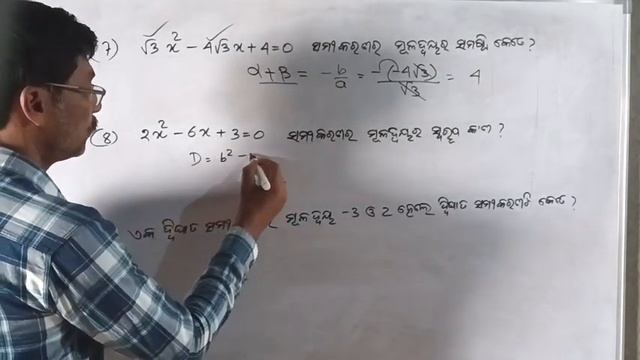 (7) √3 x² - 4√3 x + 4 = 0 ସମୀକରଣର ମୂଳଦ୍ୱୟର ସମଷ୍ଟି କେତେ ?
α + β = - b/a = -(-4√3)/√3 = 4
(8) 2x² - 6x + 3 = 0 ସମୀକରଣର ମୂଳଦ୍ୱୟର ସ୍ୱରୂପ କ'ଣ ?
D = b² -
ଏକ ଦ୍ୱିଘାତ ମୂଳଦ୍ୱୟ -3 ଓ 2 ହେଲେ ଦ୍ୱିଘାତ ସମୀକରଣଟି କେତେ ?